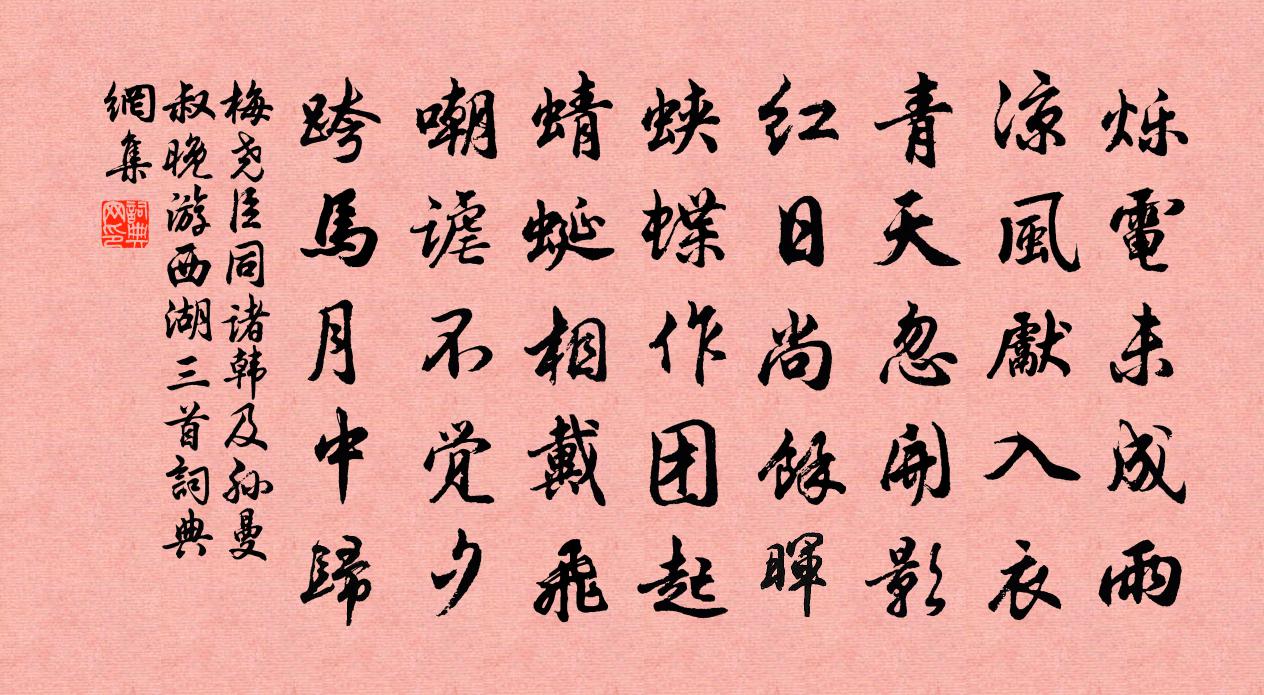 烁電未成雨
涼風獻入衣
青天忽開影
红日尚餘暉
蛱蝶作团起
蜻蜓相戴飛
嘲谑不觉夕
跨馬月中歸
梅尧臣同诸韩及孙曼
叔晚游西湖三首詞典
網集
詞典
网印